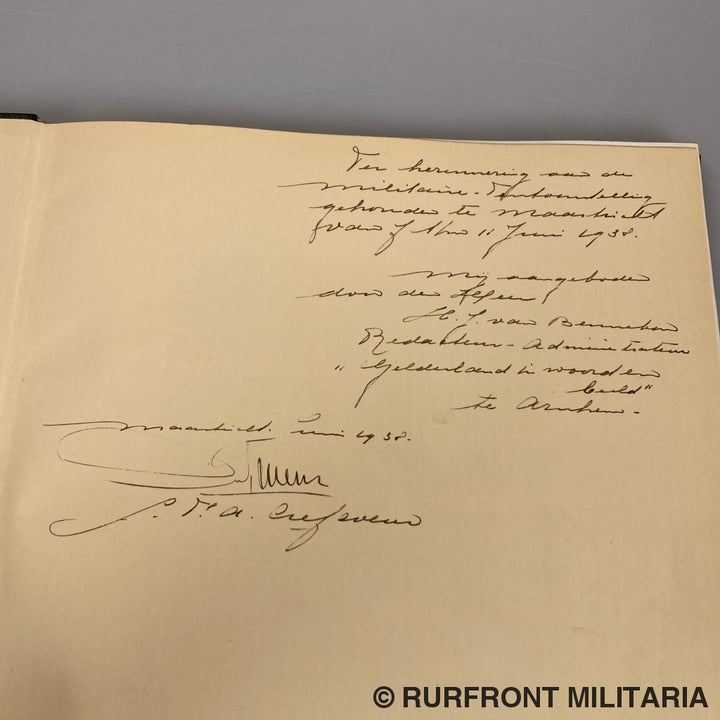 Ter herinnering aan de
militaire-Tentoonstelling
gehouden te Maastricht
van t/m 11 Juni 1938.
Mij aangeboden
door den Heer
H. J. van Bennekom
Redacteur-Administrateur
"Gelderland in woord en
beeld"
te Arnhem-
Maastricht. Juni 1938.
© RURFRONT MILITARIA